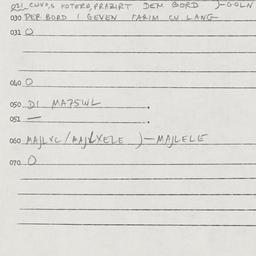 021 CUVO,S KOTERO, PRAZIRT DEM BORD )-GOLN
030 PER BORD I GEVEN FARIM CU LANG
031 O
040 O
050 DI MA75WL .
051 — .
060 MAJLVL / MAJLXELE )— MAJLELE
070 O